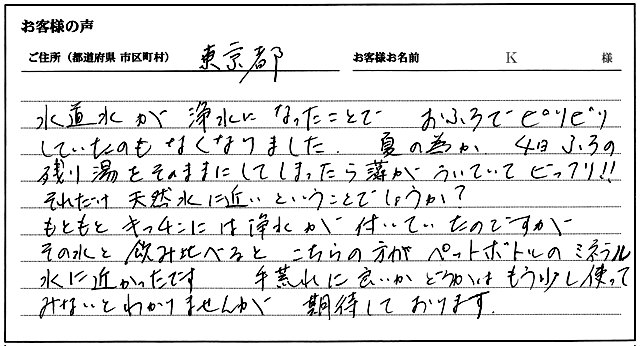 お客様の声
ご住所（都道府県 市区町村） 東京都 お客様お名前 K 様
水道水が 浄水に なったことで おふろでピリピリ
していたのもなくなりました. 夏の為か 4日ふろの
残り湯をそのままにしてしまったら藻がういていてビックリ!!
それだけ天然水に近いということでしょうか?
もともとキッチンには浄水が付いていたのですが
その水と飲み比べるとこちらの方がペットボトルのミネラル
水に近かったです 手荒れに良いかどうかはもう少し使って
みないとわかりませんが 期待しております.